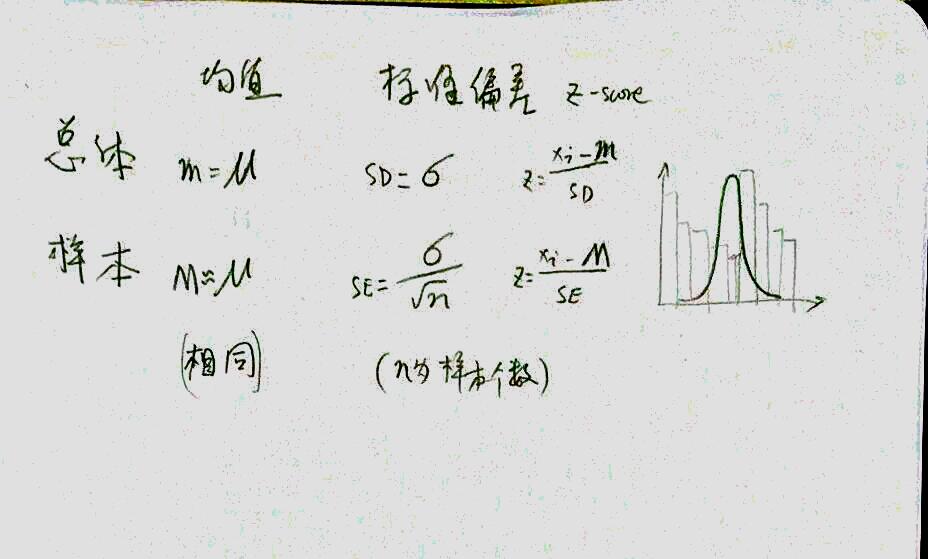 均值 标准偏差 z-score
总体 m=μ SD=σ z=(xi-m)/SD
样本 M≈μ SE=σ/√n z=(xi-M)/SE
(相同) (n为样本个数)